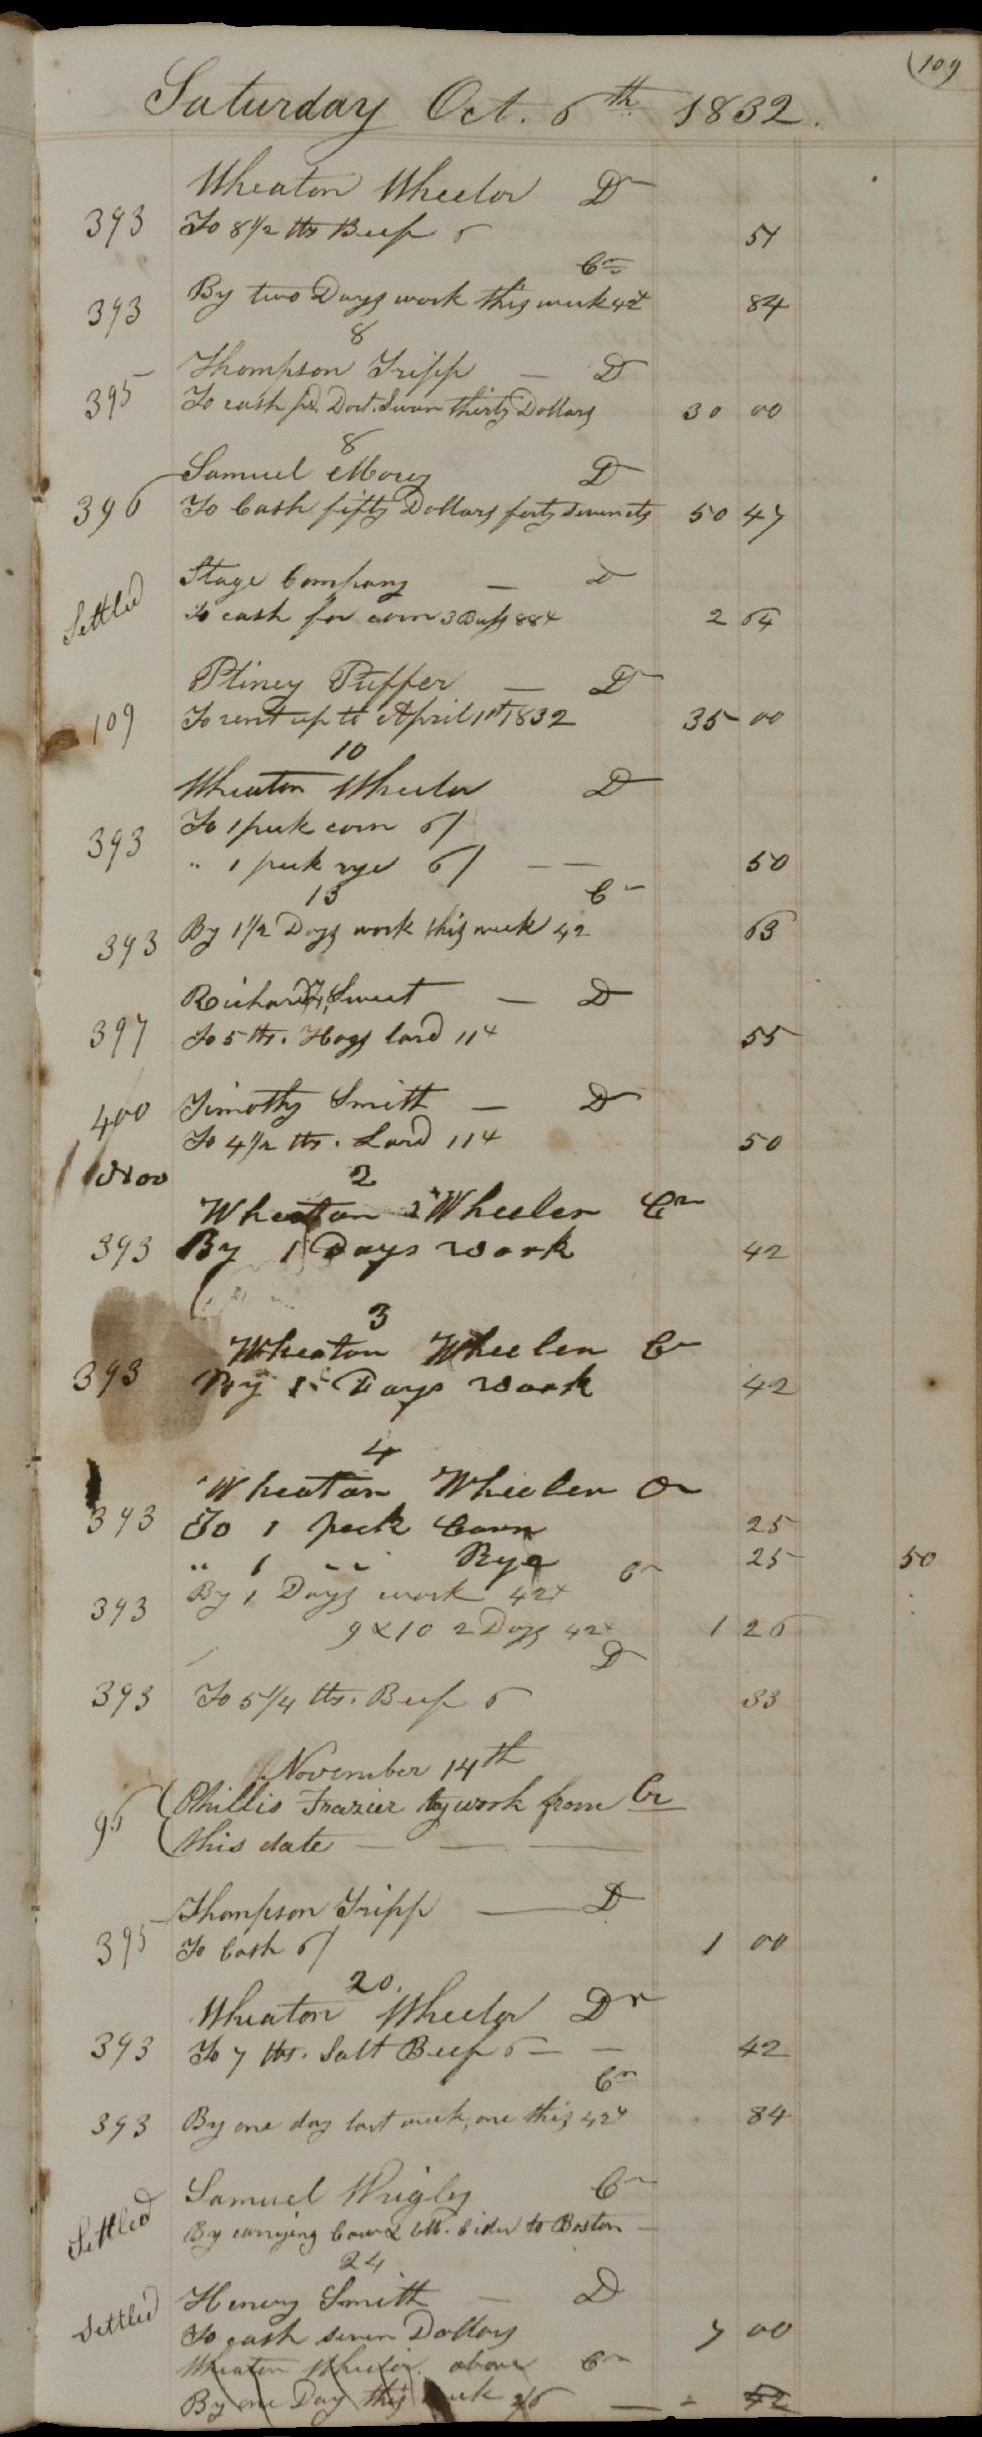 (109
Saturday Oct. 6th 1832.
Wheaton Wheelor Dr
393 To 8 1/2 lbs Beef 6 51
Cr
393 By two Days work this week 42 84
8
Thompson Tripp — D
395 To cash pd. Doct. Swan thirty Dollars 30 00
8
Samuel Morey D
396 To Cash fifty Dollars forty seven cts 50 47
Stage Company — D
Settled To cash for corn 3 Bush 88 2 64
Pliney Puffer — D
109 To rent up to April 1st 1832 35 00
10
Wheaton Wheelor D
393 To 1 peck corn 6/
" 1 peck rye 6/ — — 50
13 Cr
393 By 1 1/2 Days work this week 42 63
Richard Sweet — D
397 To 5 lbs. Hogs lard 11 55
400 Timothy Smith — D
To 4 1/2 lbs. Lard 11 50
2
Wheaton Wheeler Cr
393 By 1 Days work 42
3
Wheaton Wheeler Cr
393 By 1 Days work 42
4
Wheaton Wheeler Dr
393 To 1 peck Corn 25
" 1 " " Rye 25 50
Cr
393 By 1 Days work 42
9 & 10 2 Days 42 1 26
D
393 To 5 1/4 lbs. Beef 6 33
November 14th
96 Phillis Frazier by work from Cr
this date — — —
Thompson Tripp — D
395 To Cash 6/ 1 00
20.
Wheaton Wheelor Dr
393 To 7 lbs. Salt Beef 6 — — 42
Cr
393 By one day last week, one this 42 84
Samuel Wrigley Cr
Settled By carrying Cow & bbl. Cider to Boston —
24
Henery Smith — D
Settled To cash seven Dollars 7 00
Wheaton Wheelor above Cr
By one Day this week 2/6 — - 42